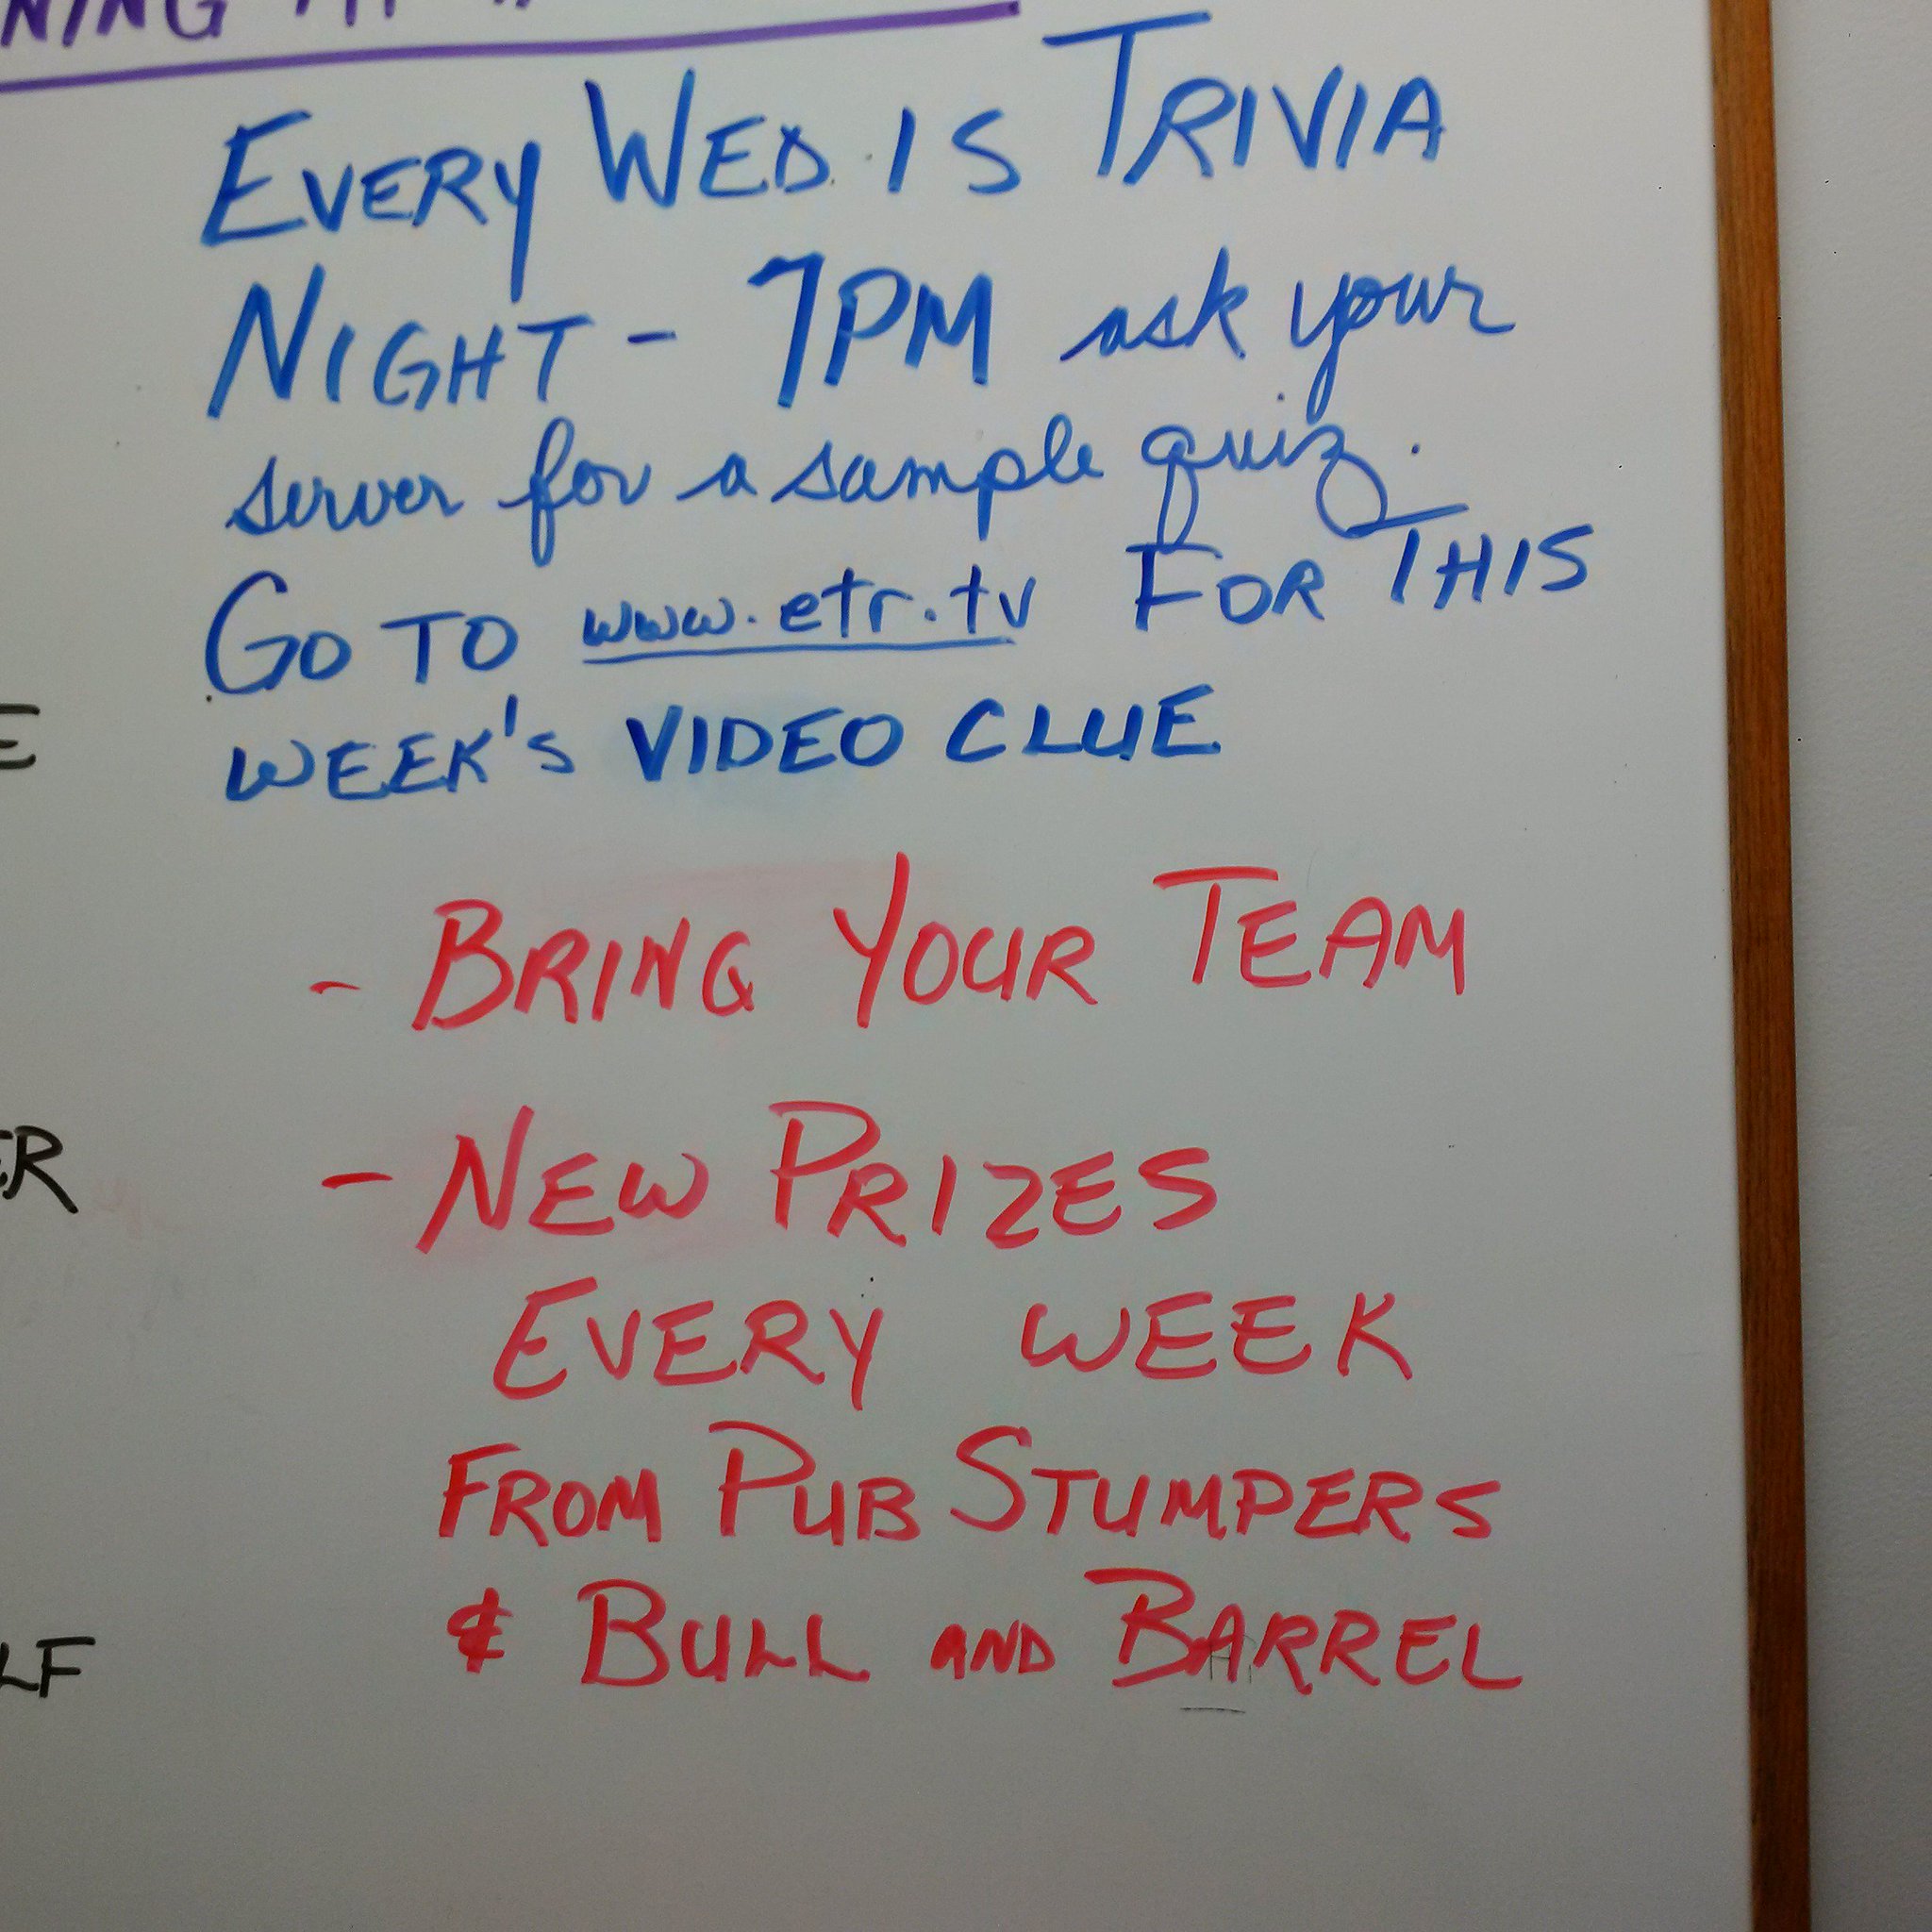 NING
EVERY WED. IS TRIVIA
NIGHT - 7PM ask your
server for a sample quiz.
GO TO www.etr.tv FOR THIS
WEEK'S VIDEO CLUE
- BRING YOUR TEAM
- NEW PRIZES
EVERY WEEK
FROM PUB STUMPERS
& BULL AND BARREL
E
ER
LF